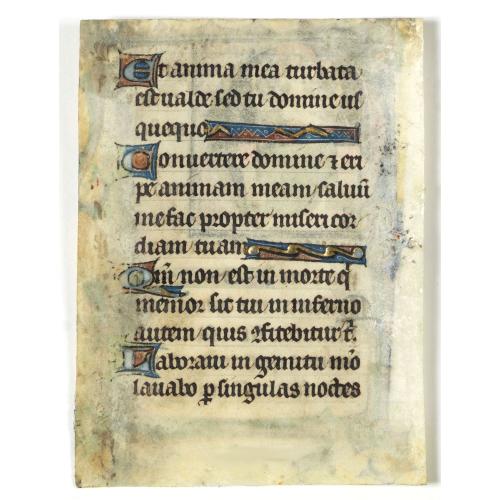 Et anima mea turbata
est ualde sed tu domine us
quequo
Conuertere domine ⁊ eri
pe animam meam saluū
me fac propter misericor
diam tuam
Qm̄ non est in morte q̇
memor sit tui in inferno
autem quis ↄfitebitur t̄.
Laboraui in gemitu mō
lauabo ꝑ singulas noctes